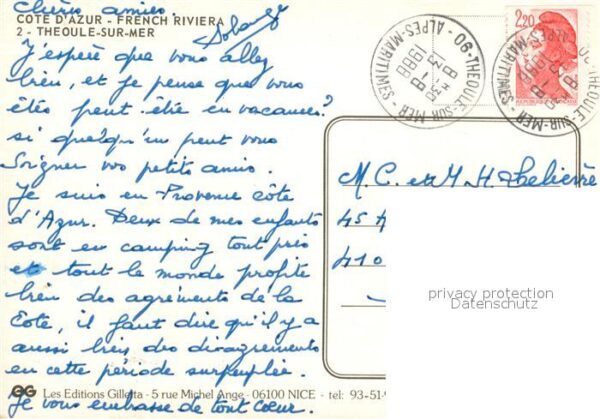 Chers amies.
COTE D'AZUR - FRENCH RIVIERA
2 - THEOULE-SUR-MER
Solange
J'espère que vous allez
bien, et je pense que vous
êtes peut-être en vacances?
si quelqu'un peut vous
Soigner vos petits amis.
Je suis en Provence Côte
d'Azur. Deux de mes enfants
sont en camping tout près
et tout le monde profite
bien des agréments de la
Côte, il faut dire qu'il y a
aussi bien des désagréments
en cette période surpeuplée.
GG Les Editions Gilletta - 5 rue Michel Ange - 06100 NICE - tel: 93-51-9
Je vous embrasse de tout coeur.
06-THEOULE-SUR-MER
ALPES-MARITIMES
8 - 8
1988
2,20
REPUBLIQUE FRANCAISE
06-THEOULE-SUR-MER
ALPES-MARITIMES
M. C. et M. H.
45
410
privacy protection
Datenschutz